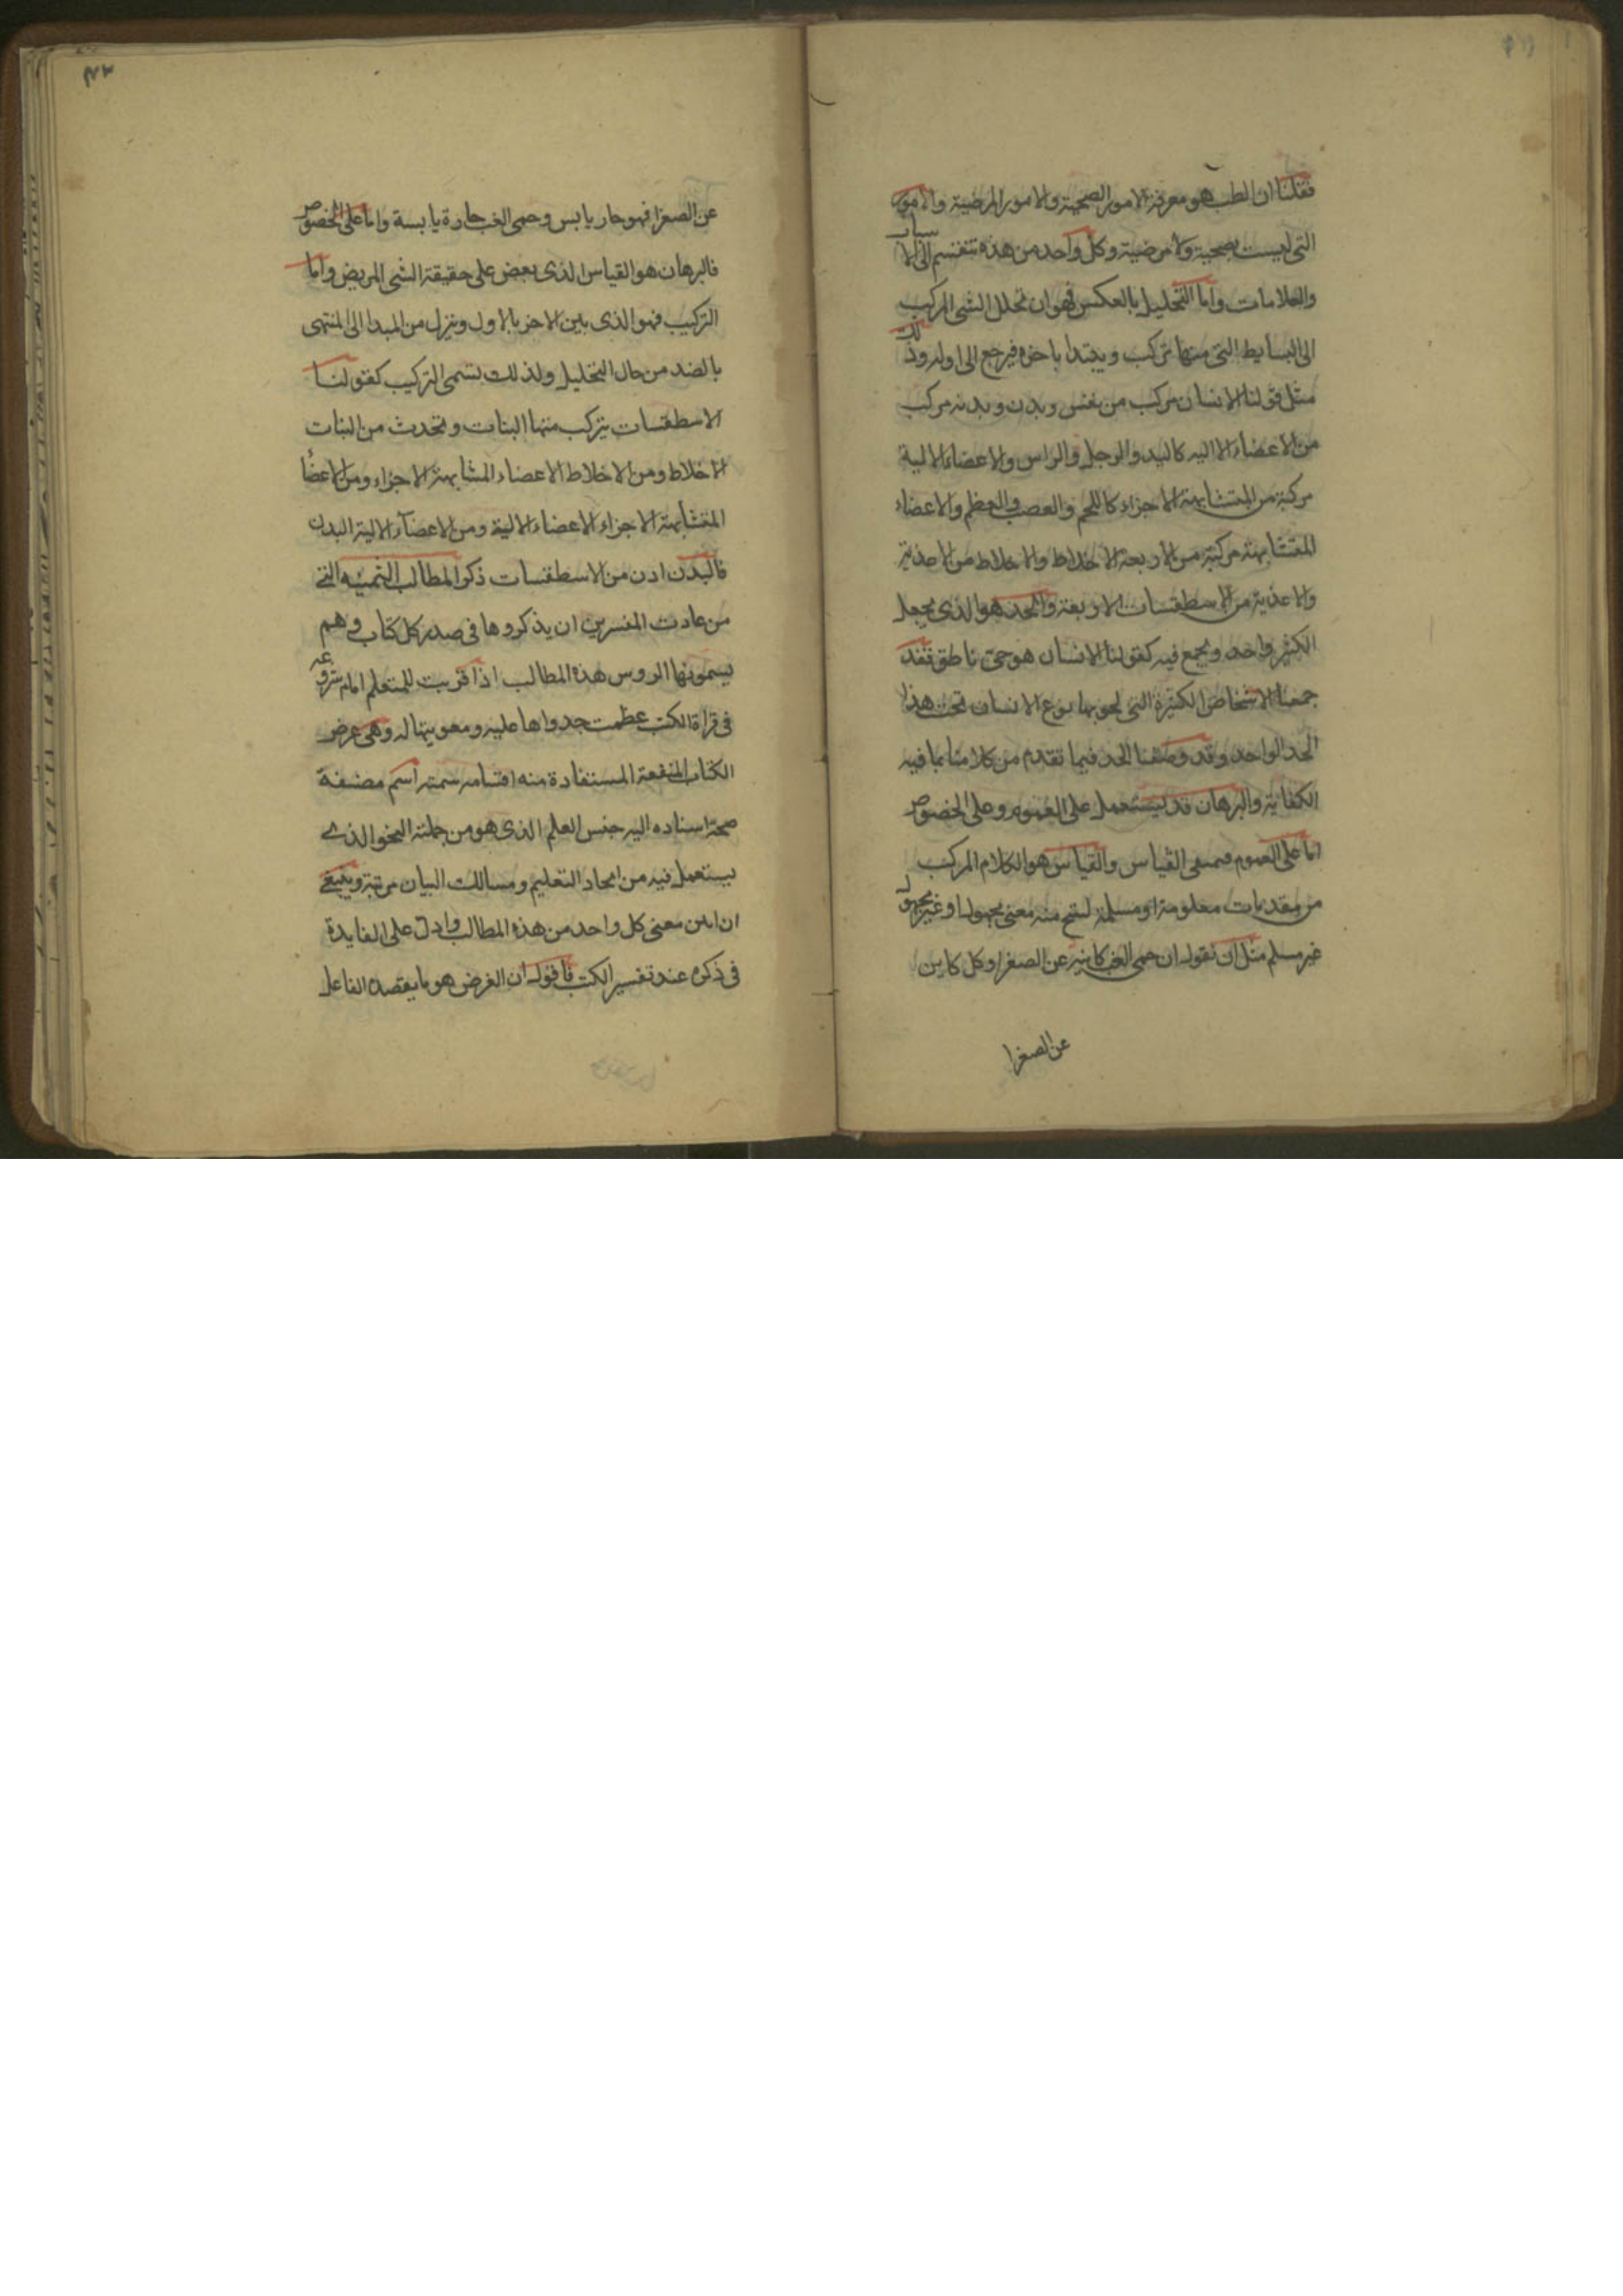 فقلنا ان الطب هو معرفة الامور الصحية والامور المرضية والامور
التى ليست بصحية ولا مرضية وكل واحد من هذه تنقسم الى الاسباب
والعلامات واما التحليل بالعكس فهو ان تحلل الشى المركب
الى البسايط التى منها تركب ويبتدا باخره فيرجع الى اوله وذلك
مثل قولنا الانسان مركب من نفس وبدن وبدنه مركب
من الاعضاء الاليه كاليد والرجل والراس والاعضاء الالية
مركبة من المتشابهة الاجزاء كاللحم والعصب والعظم والاعضاء
المتشابهة مركبة من الاربعة الاخلاط والاخلاط من الاغذية
والاغذية من الاسطقسات الاربعة والحد هو الذى يجعل
الكثير واحد ويجمع فيه كقولنا الانسان هو حى ناطق فقد
جمعنا الاشخاص الكثيرة التى بنوع الانسان تحت هذا
الحد الواحد وقد وصفنا الحد فيما تقدم من كلامنا بما فيه
الكفاية والبرهان قد يستعمل على العموم وعلى الخصوص
اما على العموم فمعنى القياس والقياس هو الكلام المركب
من مقدمات معلومة او مسلمة لينتج منه معنى مجهول او غير مجهول
غير مسلم مثل ان نقول ان حمى الغب كاينه عن الصفرا وكل كاين
عن الصفرا
٤٣
عن الصفرا فهو حار يابس وحمى الغب حارة يابسة واما على الخصوص
فالبرهان هو القياس الذى بعض على حقيقة الشى المريض واما
التركيب فهو الذى الاخر بالاول وينزل من المبدا الى المنتهى
بالضد من حال التحليل ولذلك تسمى التركيب كقولنا
الاسطقسات يتركب منها النبات وتحدث من النبات
الاخلاط ومن الاخلاط الاعضاء المتشابهة الاجزاء ومن الاعضاء
المتشابهة الاجزاء الاعضاء الالية ومن الاعضآء الالية البدن
فالبدن اذن من الاسطقسات ذكر المطالب الثمنيه التى
من عادت المفسرين ان يذكروها فى صدر كل كتاب وهم
يسمونها الروس هذه المطالب اذا قربت للمتعلم امام شروعه
فى قراة الكتب عظمت جدواها عليه ومعونتها له وهى غرض
الكتاب المنفعة المستفادة منه اقسامه سمته اسم مصنفه
صحة اسناده اليه جنس العلم الذى هو من جملته النحو الذى
يستعمل فيه من انحاد التعليم ومسالك البيان مرتبة وينبغى
ان ابين معنى كل واحد من هذه المطالب وادل على الفايدة
فى ذكره عند تفسير الكتب فاقول ان الغرض هو ما يقصده الفاعل